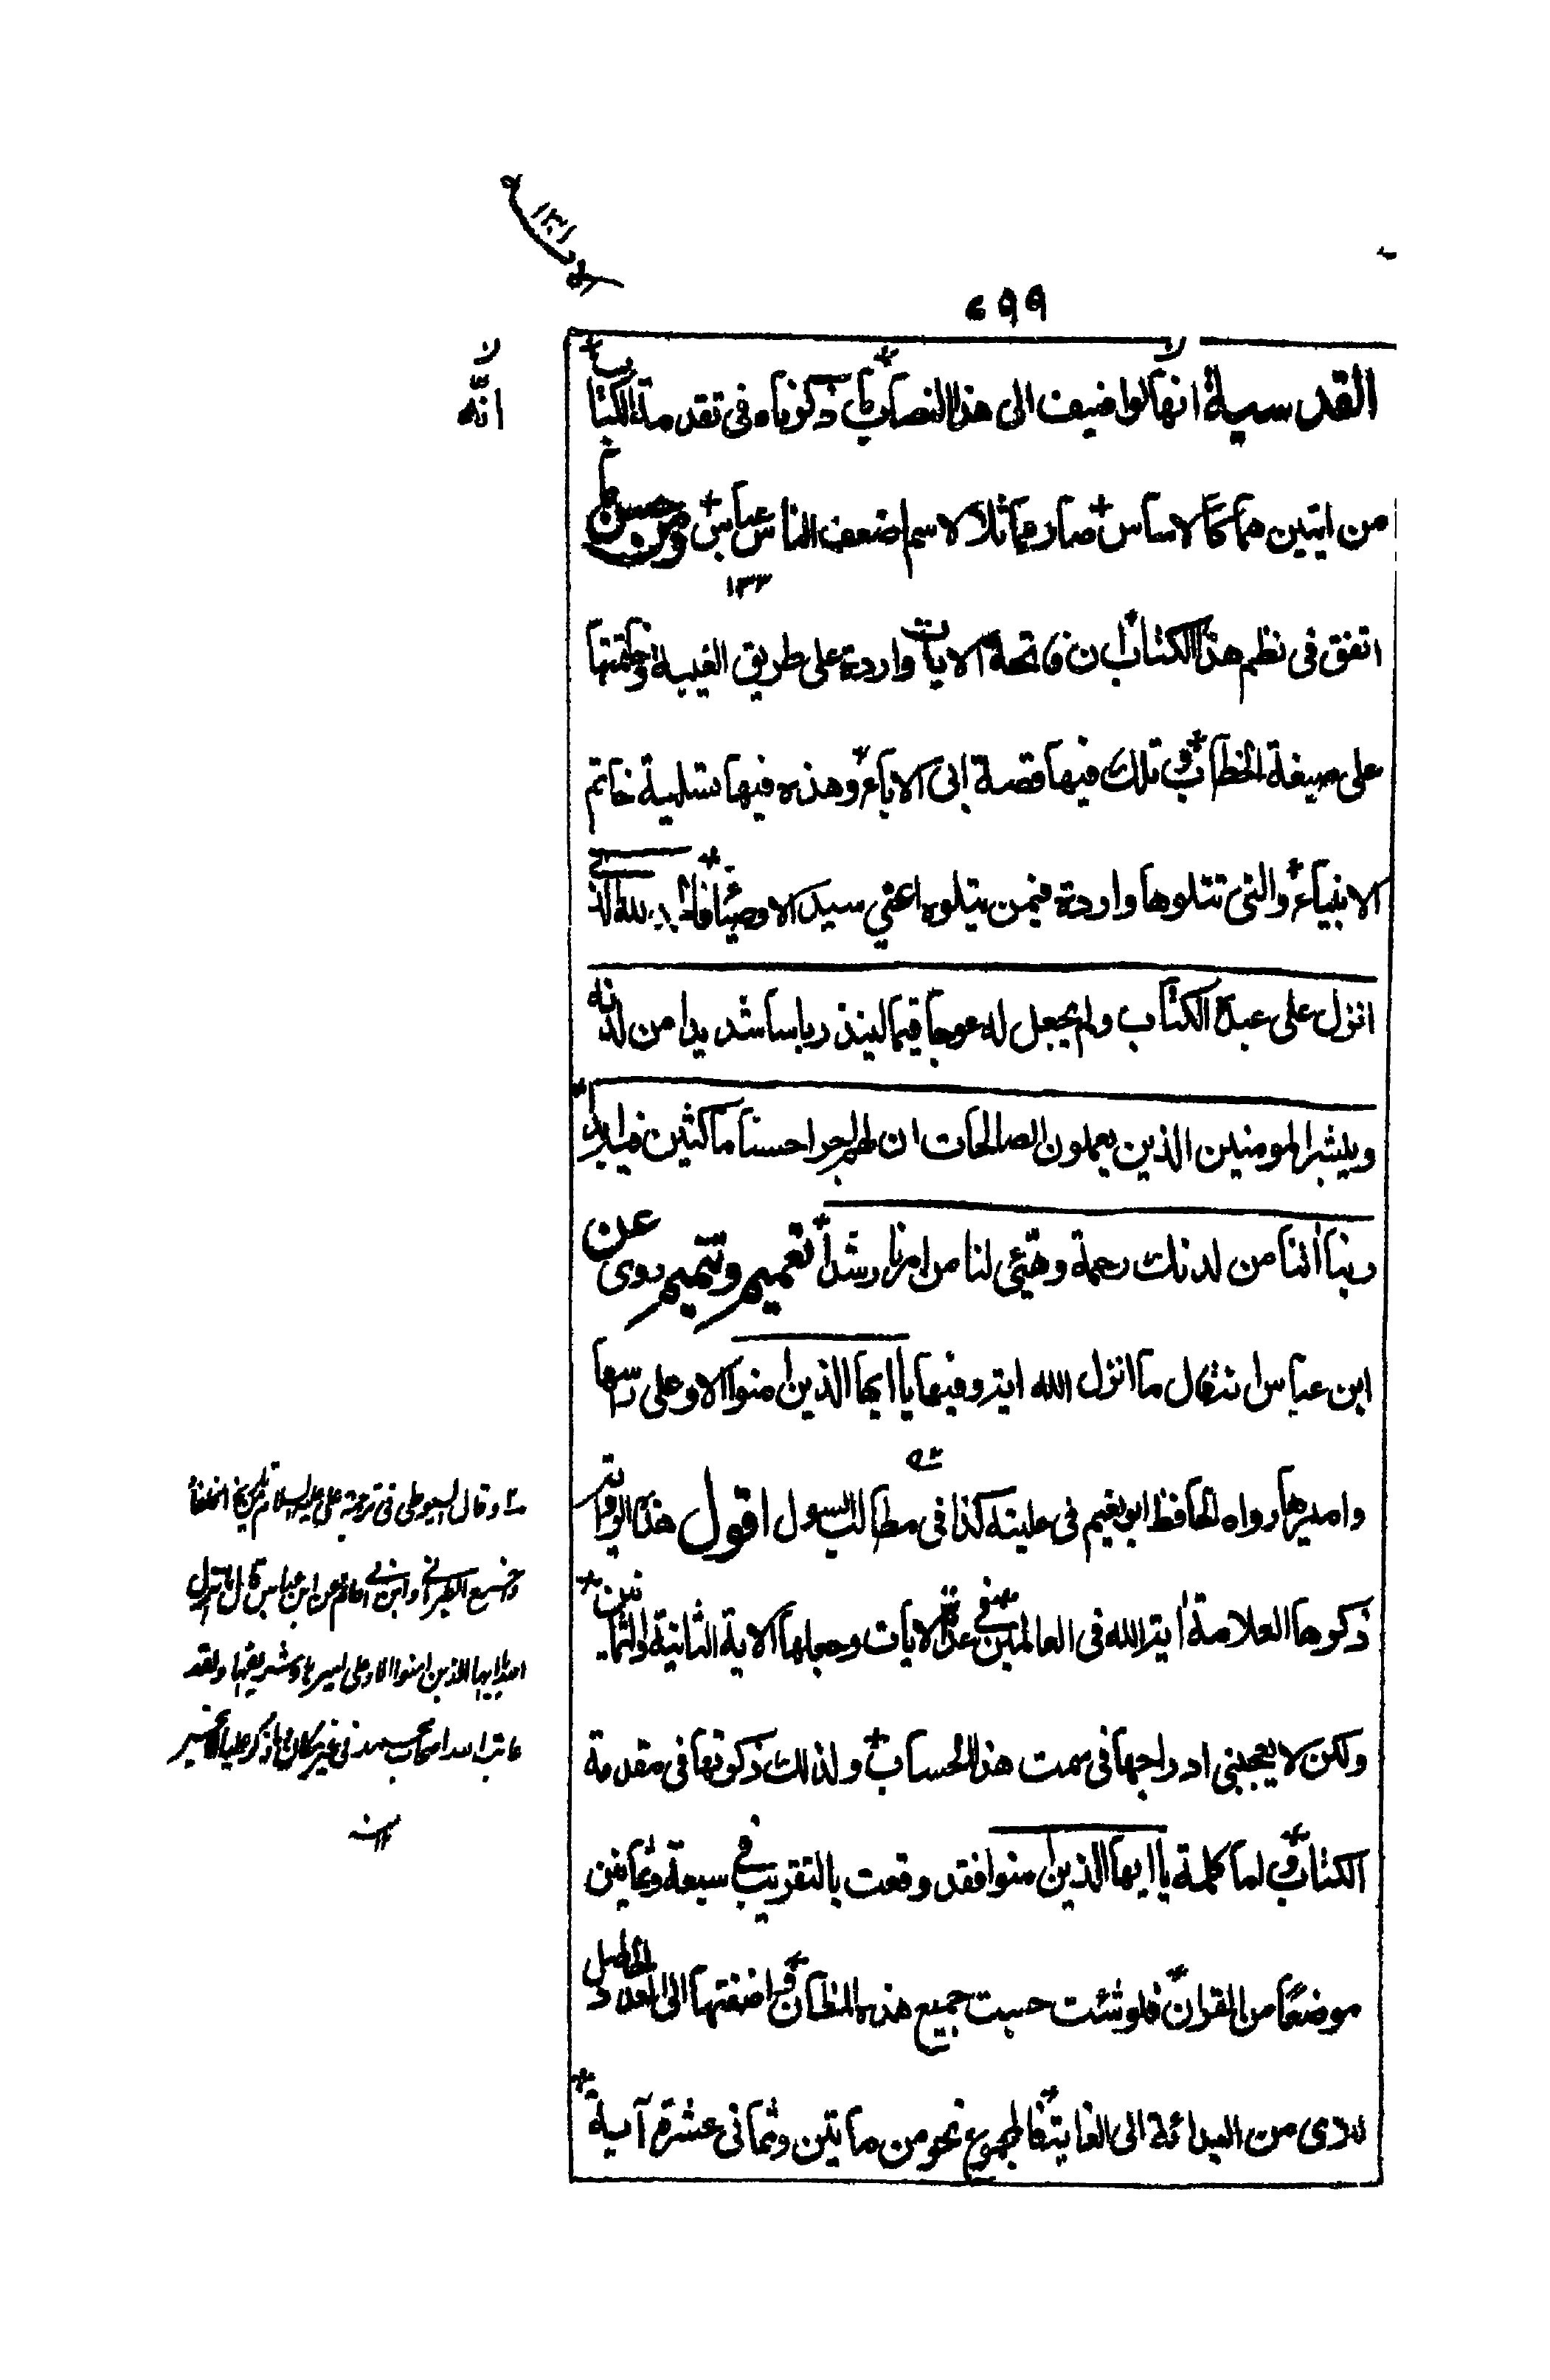 ٤٩٩
القدسية انها لو اضيف الى هذا النصاب ما ذكرناه فى تقدمة الكتاب
من ايتين هما كالاساس صار مماثلا لاسم اضعف الناس عباس ومن حسن ما
١٣٣
اتفق فى نظم هذا الكتاب ان فاتحة الايات واردة على طريق الغيبة وخاتمتها
على صيغة الخطاب وتلك فيها قصة ابى الاباء وهذه فيها تسلية خاتم
الانبياء والتى تتلوها واردة فيمن يتلوه اعنى سيد الاوصياء فالحمد لله الذى
انزل على عبده الكتاب ولم يجعل له عوجا قيما لينذر باسا شديدا من لدنه
ويبشر المومنين الذين يعملون الصالحات ان لهم اجرا حسنا ماكثين فيه ابدا
ربنا اتنا من لدنك رحمة وهيئ لنا من امرنا رشدا تعميم وتتميم روى عن
ابن عباس انه قال ما انزل الله اية وفيها يا ايها الذين امنوا الا وعلى راسها
واميرها رواه الحافظ ابو نعيم فى حليته كذا فى مطالب السول اقول هذه الرواية
ذكرها العلامة اية الله فى العالمين فى عدة الايات وجعلها الاية الثانية والثمانين
ولكن لا يعجبنى ادراجها فى سمت هذا الحساب ولذلك ذكرتها فى مقدمة
الكتاب واما كلمة يا ايها الذين امنوا فقد وقعت بالتقريب فى سبعة وثمانين
موضعا من القران فلو شئت حسبت جميع هذه المظان واضفتها الى العدد الحاصل
لدى من البدائة الى الغاية فالمجموع نحو من مايتين وثمانى عشرة آية
لا
انه
وقال السيوطى فى ترجمة على عليه السلام تاريخ الخلفا
واخرج الطبرانى وابن ابى حاتم عن ابن عباس قال ما نزل
الله يا ايها الذين امنوا الا وعلى اميرها وشريفها ولقد
عاتب الله اصحاب محمد فى غير مكان وما ذكر عليا الا بخير
منه